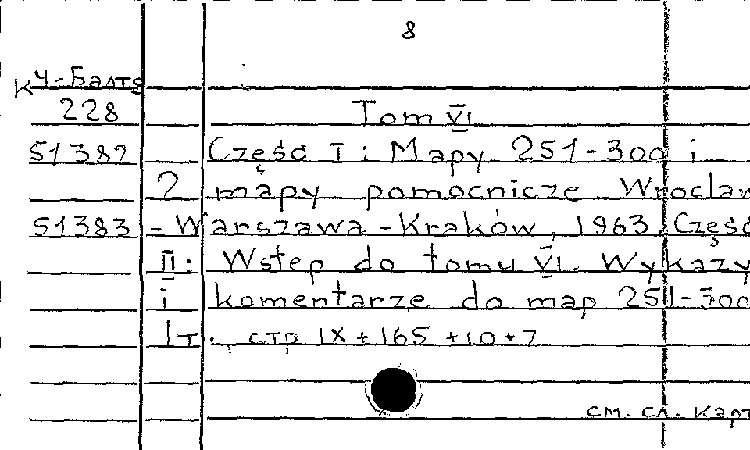 8
К Ч-Балтя
228 Tom VI
51382 Część I: Mapy 251-300 i
2 mapy pomocnicze Wrocław
51383 - Warszawa - Kraków, 1963. Część
II: Wstęp do tomu VI. Wykazy
i komentarze do map 251-300
1т., стр IX + 165 + 10 + 7
см. сл. карт